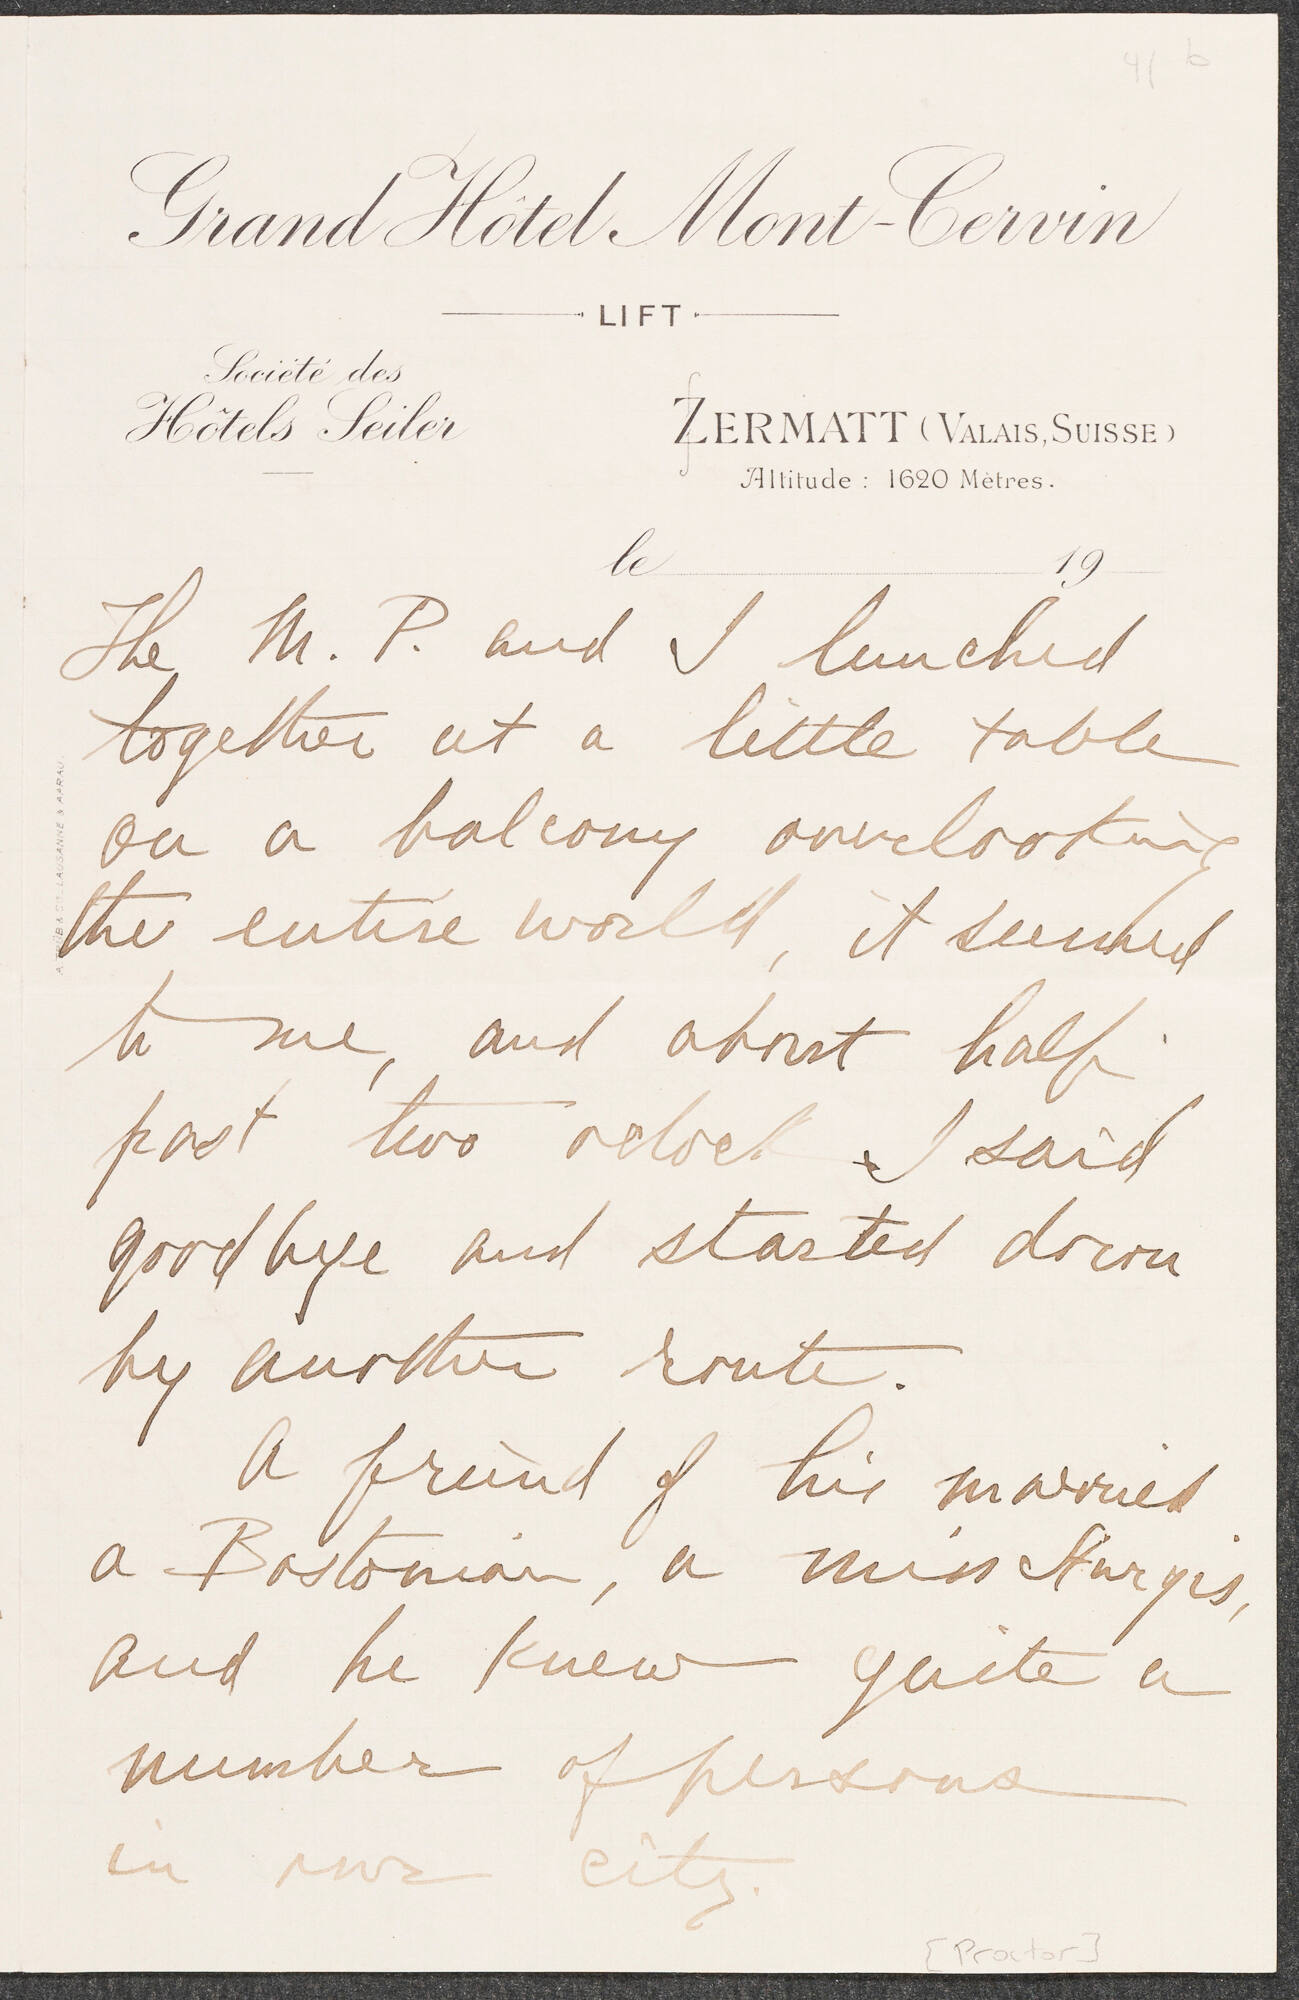 4/ b
Grand Hôtel Mont-Cervin
LIFT
Société des
Hôtels Seiler
ZERMATT (VALAIS, SUISSE)
Altitude : 1620 Mètres.
le 19
The M. P. and I lunched
together at a little table
on a balcony overlooking
the entire world, it seemed
to me, and about half
past two oclock I said
goodbye and started down
by another route.
A friend of his married
a Bostonian, a miss Sturgis,
and he knew quite a
number of persons
in our city.
[Proctor]
LAUSANNE & AARAU.